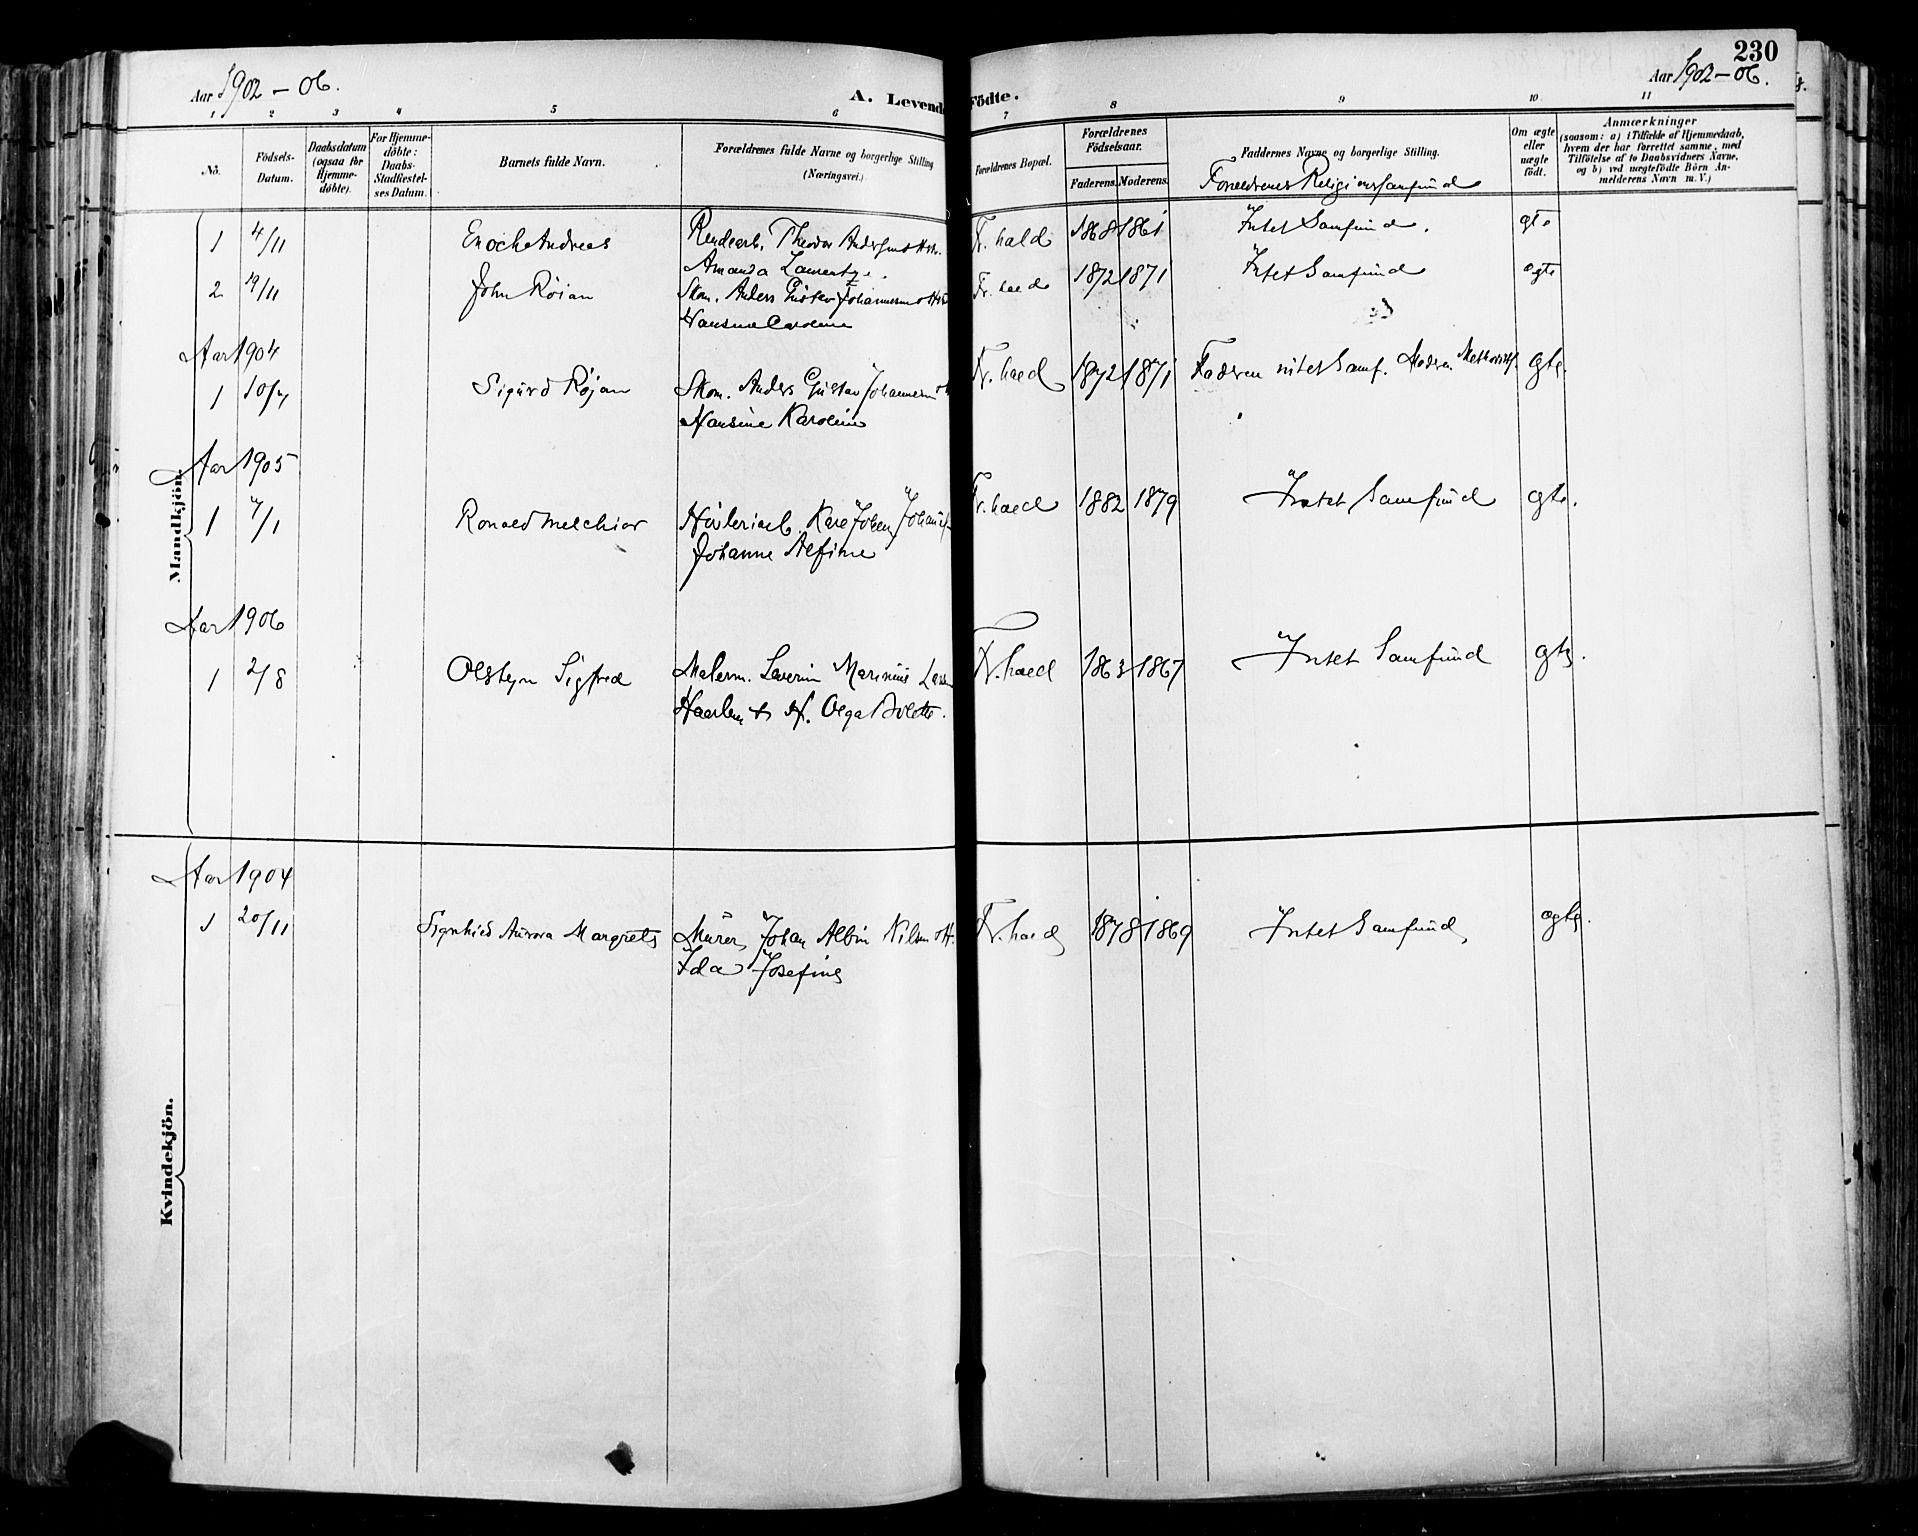 230
Aar 1902-06.
A. Levende Födte.
Aar 1902-06.
1 2 3 4 5 6 7 8 9 10 11
No.
Födsels-Datum.
Daabsdatum (ogsaa for Hjemmedöbte).
For Hjemmedöbte: Daabs-Stadfæstelses Datum.
Barnets fulde Navn.
Forældrenes fulde Navne og borgerlige Stilling (Næringsvei.)
Forældrenes Bopæl.
Forældrenes Födselsaar.
Faderens. Moderens.
Faddernes Navne og borgerlige Stilling.
Forældrenes Religionssamfund
Om ægte eller uægte födt.
Anmærkninger
(saasom: a) i Tilfælde af Hjemmedaab,
hvem der har forrettet samme, med
Tilföielse af to Daabsvidners Navne,
og b) ved uægtefödte Börn Anmelderens Navn m. V.)
Mandkjön.
1 4/11 Enoch Andreas Theodor Fr.hald 1868 1861 Intet Samfund. gte
Amanda
2 19/11 John Röian Skom. Anders Gustav Johannesen o H Fr.hald 1872 1871 Intet Samfund ægte
Hansine Caroline
Aar 1904
1 10/7 Sigurd Röjan Skom. Anders Gustav Johannesen o Fr.hald 1872 1871 Faderen intet Samf. Moderen Methodist. gte.
Hansine Karoline
Aar 1905
1 7/1 Ronald Melchior Karl Johan Fr.hald 1882 1879 Intet Samfund gte.
Johanne Alfine
Aar 1906
1 2/8 Sigfred Malerm. Severin Marinius Fr.hald 1863 1867 Intet Samfund gte.
H. Olga
Kvindekjön.
Aar 1904
1 20/11 Aurora Margrete Murer Johan Albin Nilsen o H. Fr.hald 1878 1869 Intet Samfund, ægte.
Ida Josefine